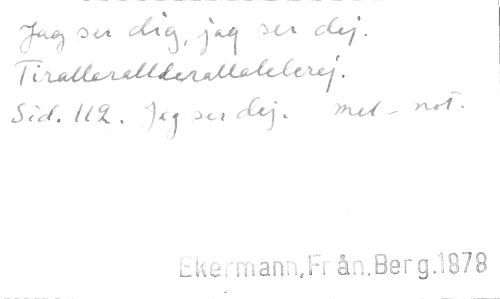 Jag ser dig, jag ser dej.
Tirallerallderallalelerej.
Sid. 112. Jag ser dej. mel-not.
Ekermann, Från. Berg. 1878